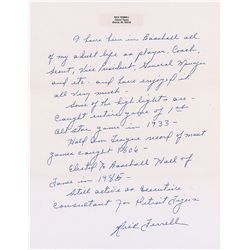 RICK FERRELL
I have been in Baseball all
of my adult life as player, Coach,
Scout, Vice President, General Manager
and etc. and have enjoyed it
all very much -
Some of the high-lights are -
Caught entire game of 1st
all star game in 1933 -
Held Am League record of most
games caught 1806 -
Elected to Baseball Hall of
Fame in 1985 -
Still active as Executive
Consultant for Detroit Tigers
Rick Ferrell